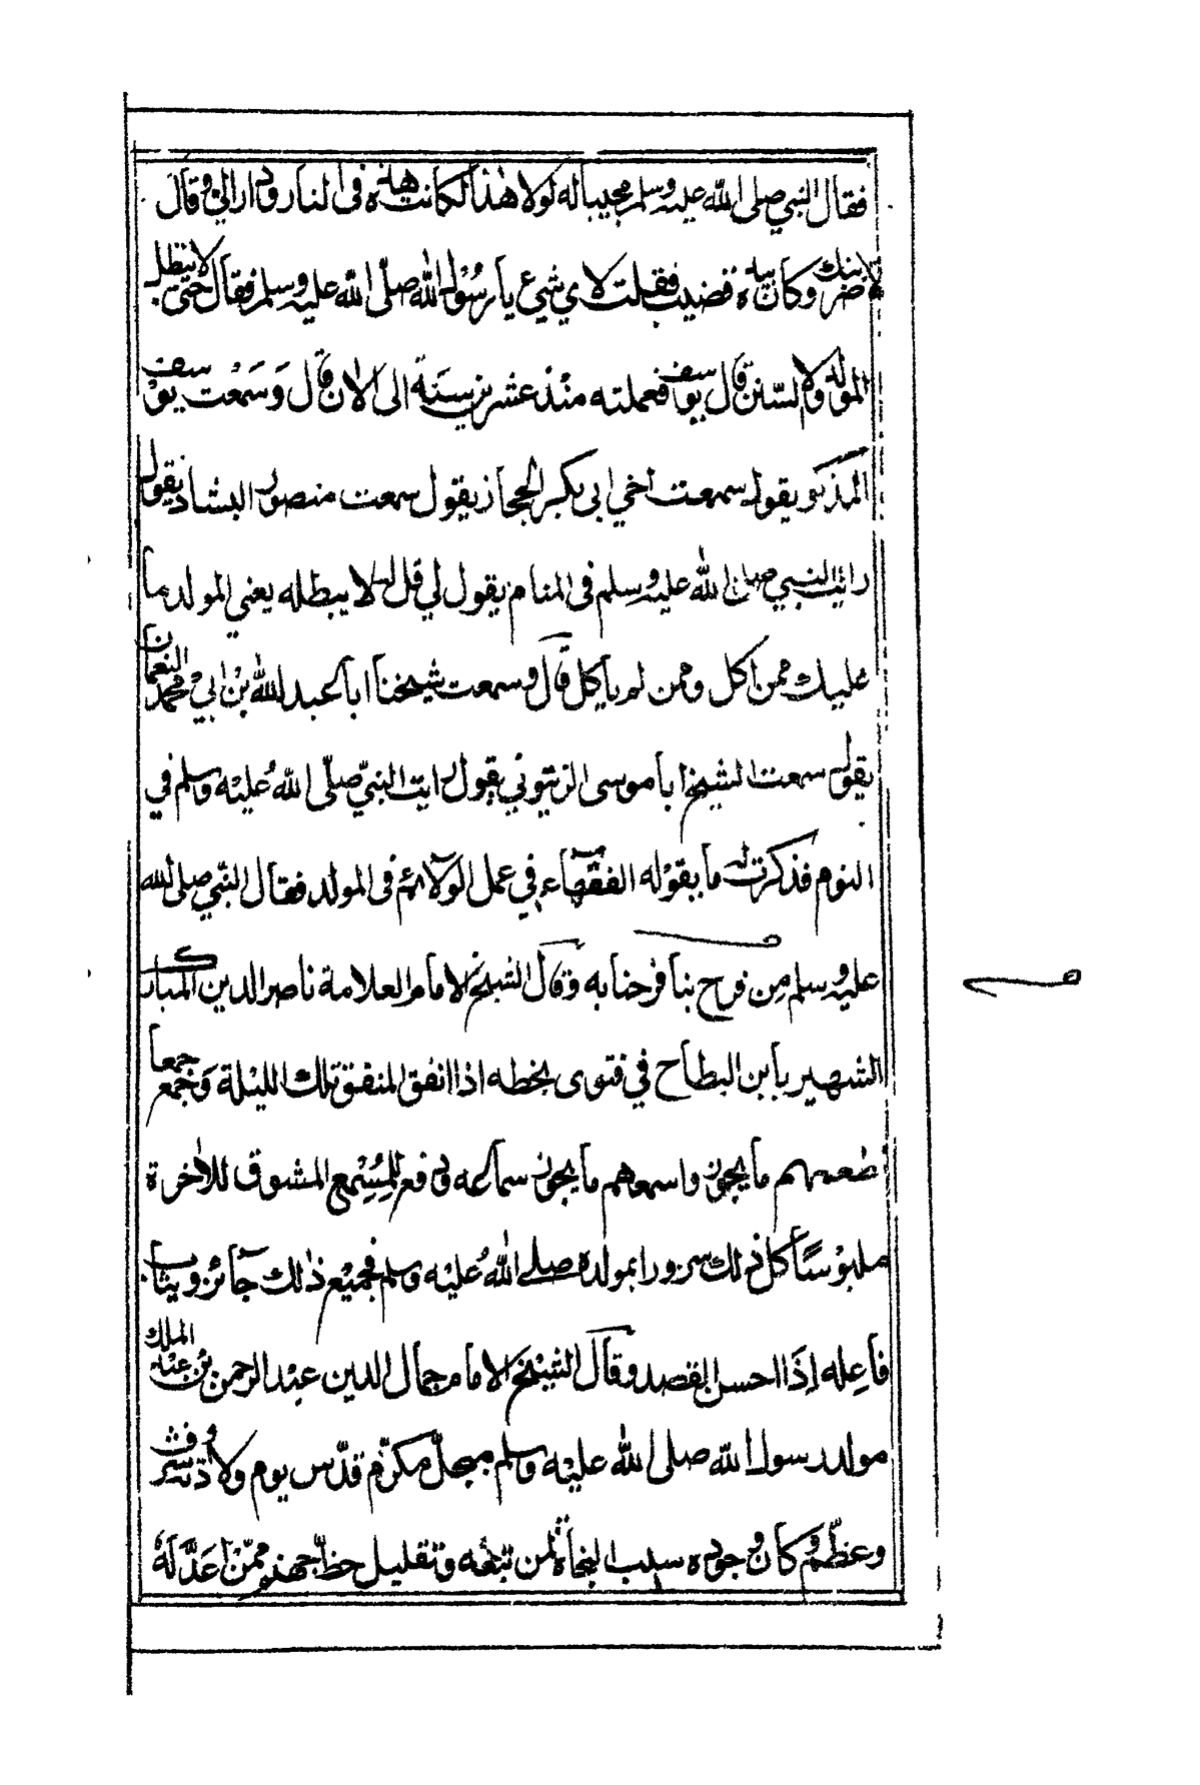 فقال النبي صلى الله عليه وسلم مجيبا له لولا هذا لكانت هذه في النار ودار الي وقال
لاضربنك وكان بيده قضيب فقلت لاي شيء يا رسول الله صلى الله عليه وسلم فقال حتى لا تبطل
المولد ولا السنن قال يوسف فعملته منذ عشرين سنة الى الان قال وسمعت يوسف
المذكور يقول سمعت اخي ابى بكر الحجاز يقول سمعت منصور البشاد يقول
رايت النبي صلى الله عليه وسلم فى المنام يقول لي قل له لا يبطله يعني المولد ما
عليك ممن اكل وممن لم ياكل قال وسمعت شيخنا ابا عبد الله بن ابي محمد النعمان
يقول سمعت الشيخ ابا موسى الزيتوني يقول رايت النبي صلى الله عليه وسلم في
النوم فذكرت له ما يقوله الفقهاء في عمل الولائم فى المولد فقال النبي صلى الله
عليه وسلم من فرح بنا فرحنا به وقال الشيخ الامام العلامة ناصر الدين المبارك
الشهير بابن البطاح في فتوى بخطه اذا انفق المنفق تلك الليلة وجمع جمعا
اطعمهم ما يجوز واسمعهم ما يجوز سماعه ودفع للمسمع المشوق للاخرة
ملبوسا كل ذلك سرورا بمولده صلى الله عليه وسلم فجميع ذلك جائز ويثاب
فاعله اذا احسن القصد وقال الشيخ الامام جمال الدين عبد الرحمن بن عبد الملك
مولد رسول الله صلى الله عليه وسلم مبجل مكرم قدس يوم ولادته وشرف
وعظم وكان وجوده سبب النجاة لمن تبعه وتقليل حظ جهنم ممن اعد له